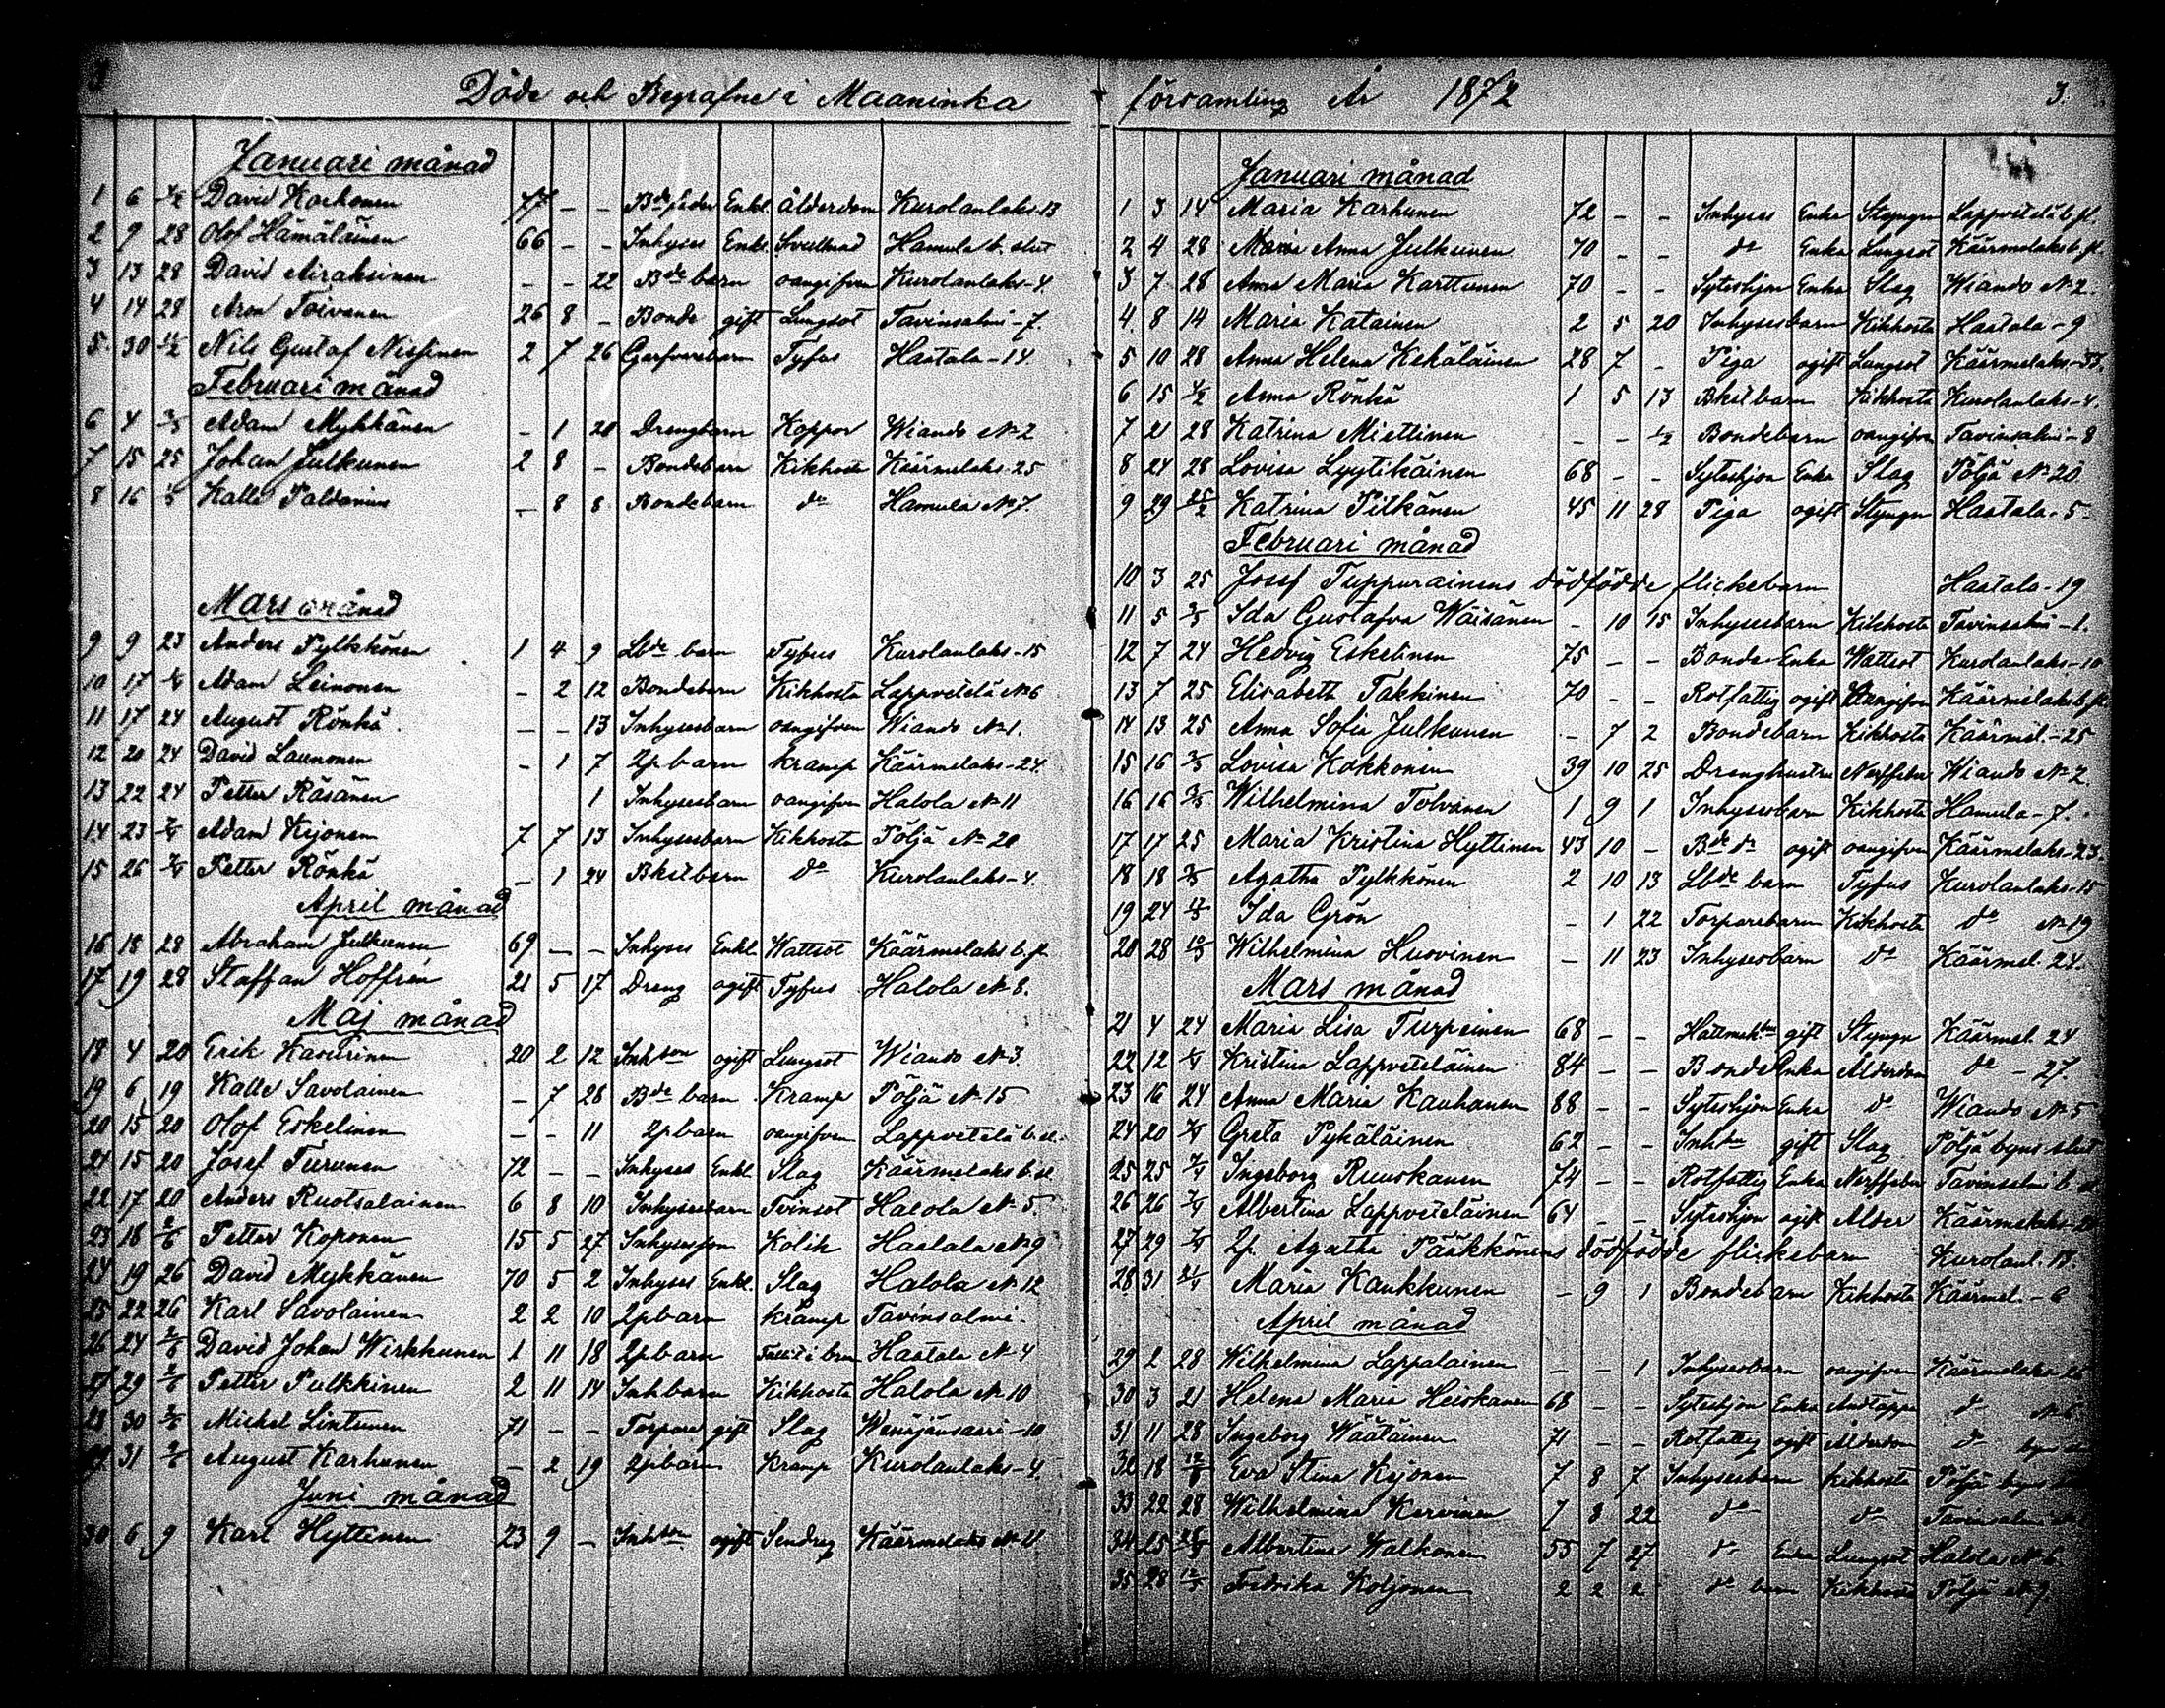 3
Döde och Begrafne i Maaninka
Januari månad
1 6 4/2 David Korhonen 77 - - Bde fader Enkl. ålderdom Kurolanlaks-13
2 9 28 Olof Hämäläinen 66 - - Inhyses Enkl. Svullnad Hamula b. slut
3 13 28 David Airaksinen - - 22 Bde barn oangifven Kurolanlaks-4.
4 14 28 Aron Toivanen 26 8 - Bonde gift Lungsot Tavinsalmi-7.
5 30 11/2 Nils Gustaf Nissinen 2 7 26 Tyfus Haatala-14.
Februari månad
6 4 3/3 Adam Mykkänen - 1 20 Drengbarn Koppor Wiando No 2
7 15 25 Johan Julkunen 2 8 - Bondebarn Kikhosta Käärmelaks-25
8 16 Kalle Paldanius - 8 8 Bondebarn do Hamula No 7.
Mars månad
9 9 23 Anders Pylkkönen 1 4 9 Lbde barn Tyfus Kurolanlaks-15
10 17 Adam Leinonen - 2 12 Bondebarn Kikhosta Lappvetelä No 6
11 17 24 August Rönkä - - 13 Inhysesbarn oangifven Wiando No 1.
12 20 24 David Launonen - 1 7 2pbarn kramp Käärmelaks-24.
13 22 24 Petter Räsänen 1 Inhysesbarn oangifven Halola No 11
14 23 7/4 Adam Kejonen 7 7 13 Inhysesbarn Kikhosta Pöljä No 20
15 26 7/4 Petter Rönkä - 1 24 Bksbarn do Kurolanlaks-4.
April månad
16 18 28 Abraham Julkunen 69 - - Inhyses Enkl. Wattsot Käärmelaks b. sl.
17 19 28 Staffan Hoffrén 21 5 17 Dreng ogift Tyfus Halola No 8.
Maj månad
18 4 20 Erik Kasurinen 20 2 12 Inhson ogift Lungsot Wiando No 3.
19 6 19 Kalle Savolainen - 7 28 Bde barn Kramp Pöljä No 15
20 15 20 Olof Eskelinen - - 11 2pbarn oangifven Lappvetelä b. sl.
21 15 20 Josef Turunen 72 - - Inhyses Enkl. Slag Käärmelaks b. sl.
22 17 20 Anders Ruotsalainen 6 8 10 Inhysesbarn Tvinsot Halola No 5.
23 18 2/6 Petter Koponen 15 5 27 Kolik Haatala No 9
24 19 26 David Mykkänen 70 5 2 Inhyses Enkl. Slag Halola No 12
25 22 26 Karl Savolainen 2 2 10 2pbarn kramp Tavinsalmi.
26 24 2/6 David Johan Wirkkunen 1 11 18 2pbarn Fallit i brn Haatala No 4
27 29 2/6 Petter Pulkkinen 2 11 14 Inhbarn Kikhosta Halola No 10
28 30 2/6 Mickel Lintunen 71 - - Torpare gift Slag Wenäjänsaari-10
29 31 2/6 August Karhunen - 2 19 2pbarn Kramp Kurolanlaks-4.
Juni månad
30 6 9 Karl Hyttinen 23 9 - Inhson ogift Käärmelaks No
församling År 1872 3.
Januari månad
1 3 14 Maria Karhunen 72 - - Inhyses Enka Styngn Lappvetelä b. sl.
2 4 28 Maria Anna Julkunen 70 - - do Enka Lungsot Käärmelaks b. sl.
3 7 28 Anna Maria Karttunen 70 - - Syteshjon Enka Slag Wiando No 2.
4 8 14 Maria Katainen 2 5 20 Inhysesbarn Kikhosta Haatala-9
5 10 28 Anna Helena Kekäläinen 28 7 - Piga ogift Lungsot Käärmelaks-33.
6 15 4/2 Anna Rönkä 1 5 13 Bksbarn Kikhosta Kurolanlaks-4.
7 21 28 Katrina Miettinen - - 1/2 Bondebarn oangifven Tavinsalmi-8
8 24 28 Lovisa Lyytikäinen 68 - - Syteshjon Enka Slag Pöljä No 20.
9 29 25/2 Katrina Pitkänen 45 11 28 Piga ogift Styngn Haatala-5-
Februari månad
10 3 25 Josef Tuppurainens dödfödde flickebarn Haatala-19
11 5 3/3 Ida Gustafva Wäisänen - 10 15 Inhysesbarn Kikhosta Tavinsalmi-1.
12 7 24 Hedvig Eskelinen 75 - - Bonde Enka Wattsot Kurolanlaks-10
13 7 25 Elisabeth Takkinen 70 - - Rotfattig ogift Oangifven Käärmelaks b. sl.
14 13 25 Anna Sofia Julkunen - 7 2 Bondebarn Kikhosta Käärmel.-25
15 16 3/3 Lovisa Kokkonen 39 10 25 Drenghustru Nerffeber Wiando No 2.
16 16 3/3 Wilhelmina Tolvanen 1 9 1 Inhysesbarn Kikhosta Hamula-7.
17 17 25 Maria Kristina Hyttinen 43 10 - Bde dr ogift oangifven Käärmelaks-23.
18 18 3/3 Agatha Pylkkönen 2 10 13 Lbde barn Tyfus Kurolanlaks-15
19 24 17/3 Ida Grön - 1 22 Torparebarn Kikhosta do No 19
20 28 10/3 Wilhelmina Husvinen - 11 23 Inhysesbarn do Käärmel. 24.
Mars månad
21 4 24 Maria Lisa Turpeinen 68 - - gift Styngn Käärmel. 24
22 12 Kristina Lappveteläinen 84 - - Bonde Enka Ålderdom do - 27.
23 16 24 Anna Maria Kauhanen 88 - - Syteshjon Enka do Wiando No 5
24 20 7/4 Greta Pykäläinen 62 - - gift Slag Pöljä byns slut
25 25 7/4 Ingeborg Ruuskanen 74 - - Rotfattig Enka Nerffeber Tavinsalmi b. sl
26 26 7/4 Albertina Lappveteläinen 64 - - Syteshjon ogift Ålder Käärmelaks-
27 29 7/4 2p. Agatha Pääkkönens dödfödde flickebarn Kurolanl. 18.
28 31 21/4 Maria Kaukkunen - 9 1 Bondebarn Kikhosta Käärmel.-6
April månad
29 2 28 Wilhelmina Lappalainen - - 1 Inhysesbarn oangifven Käärmelaks 26
30 3 21 Helena Maria Heiskanen 68 - - Syteshjon Enka Andtäppa do No 6
31 11 28 Ingeborg Wäätäinen 71 - - Rotfattig ogift Ålderdom do byns
32 18 12/5 Eva Stina Kejonen 7 8 7 Inhysesbarn Kikhosta Pöljä byns
33 22 28 Wilhelmina Karvinen 7 8 22 do do Tavinsalmi
34 25 Albertina Walkonen 55 7 27 do Enka Lungsot Halola No 6
35 28 12/5 Fredrika Koljonen 2 2 2 do barn Kikhosta Pöljä No 9.